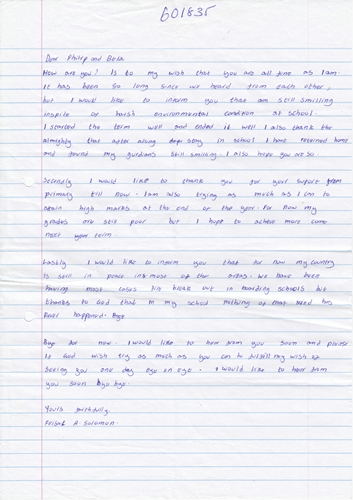 601835
Dear Philip and Bella
How are you? Is to my wish that you are all fine as I am.
It has been so long since we heard from each other,
but I would like to inform you that am still smilling
inspite of harsh environmental condition at school.
I started the term well and ended it well I also thank the
almighty that after along days song in school I have returned home
and found my gurdians still smiling. I also hope you are so.
Secondly I would like to thank you for your support from
primary till now. I am also trying as much as I can to
attain high marks at the end of the year. For now my
grades are still poor but I hope to achieve more come
next year term.
Lastly I would like to inform you that for now my country
is still in peace in most of the areas. We have been
having most cases fire break out in boarding schools but
thanks to God that in my school nothing of that kind has
ever happened. Bye
Bye for now. I would like to hear from you soon and praise
to God wish try as much as you can to fulfill my wish of
seeing you one day eye on eye. I would like to hear from
you soon bye bye.
Yours faithfully,
A. Solomon.